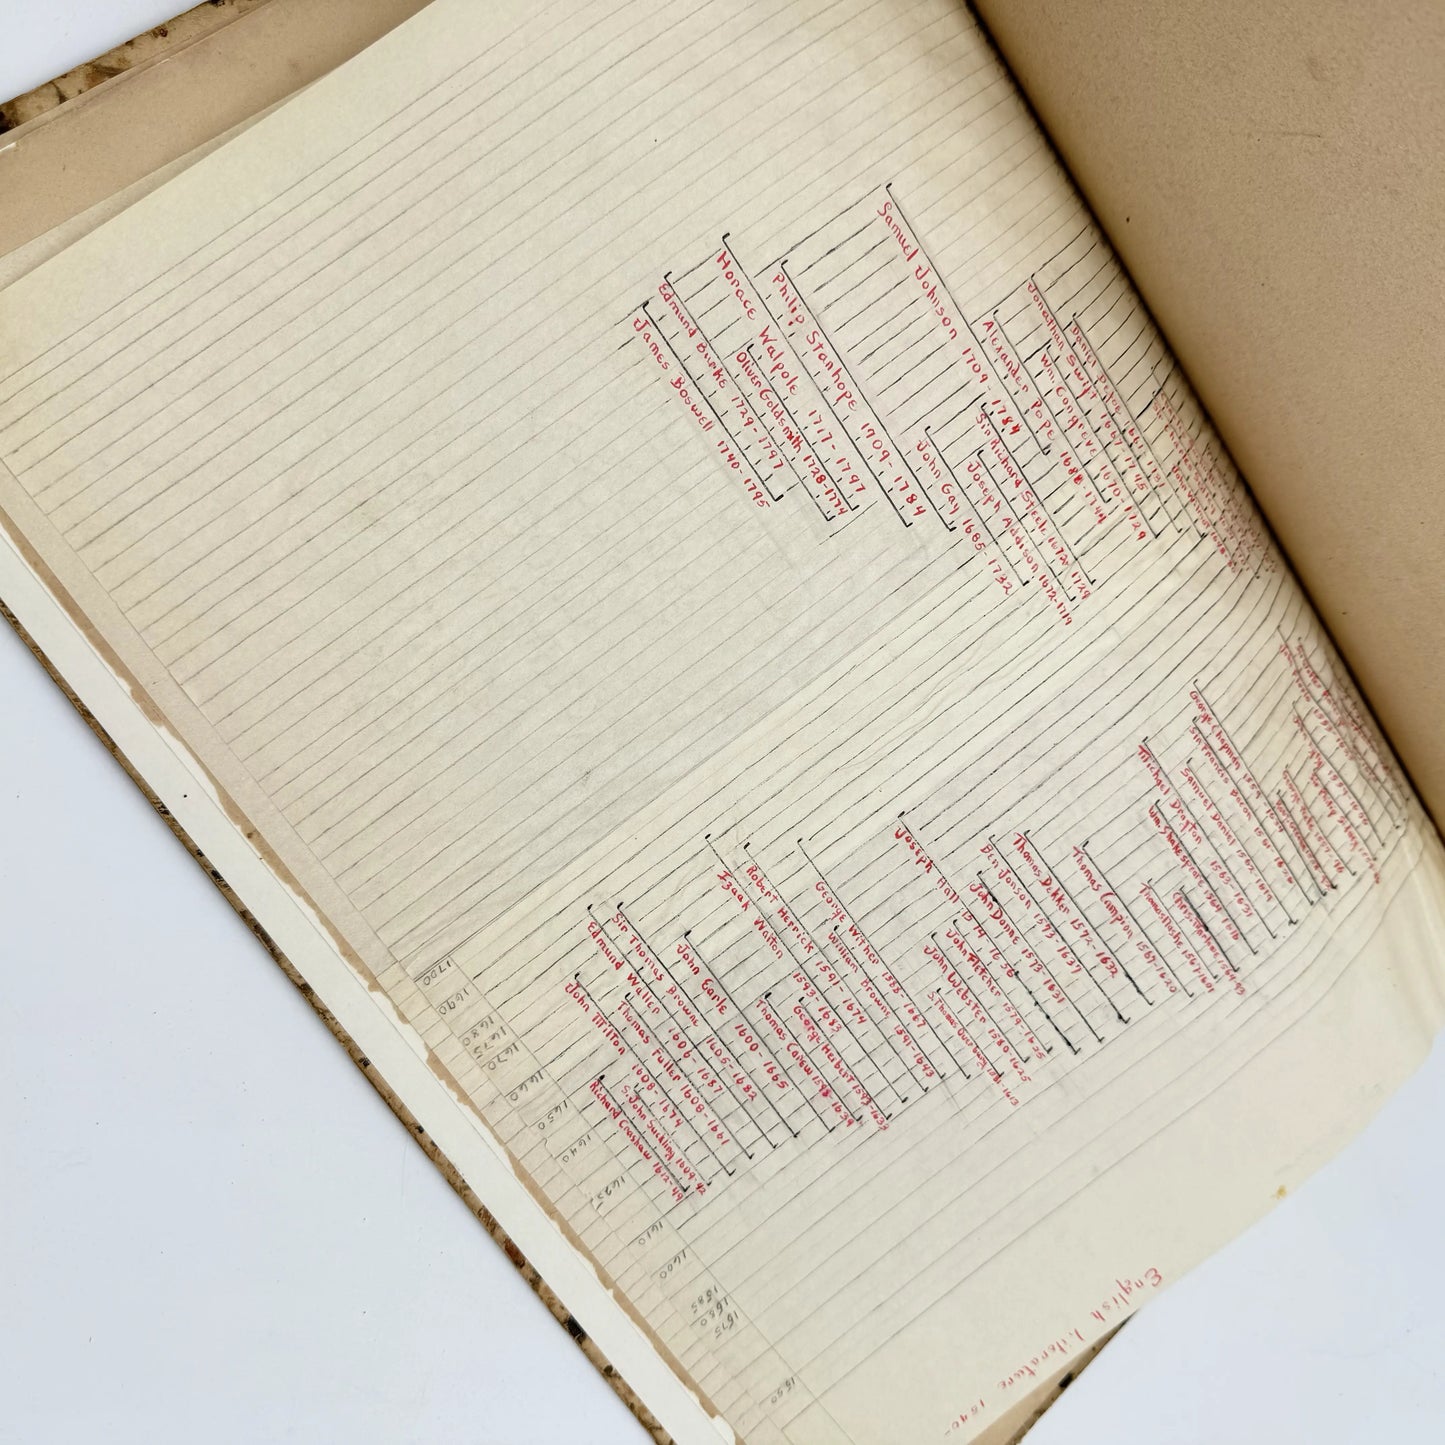 English Literature 1540-
Samuel Johnson 1709-1784
Philip Stanhope 1709-1784
Horace Walpole 1717-1797
Oliver Goldsmith 1728-1774
Edmund Burke 1729-1797
James Boswell 1740-1795
Daniel Defoe 1661-1731
Jonathan Swift 1667-1745
Wm Congreve 1670-1729
Alexander Pope 1688-1744
Sir Richard Steele 1672-1729
Joseph Addison 1672-1719
John Gay 1685-1732
George Chapman 1559
Sir Francis Bacon 1561-1626
Samuel Daniel 1562-1619
Michael Drayton 1563-1631
Wm. Shakespeare 1564-1616
Chris. Marlowe 1564-93
Thomas Nashe 1567-1601
Thomas Campion 1567-1620
Thomas Dekker 1572-1632
Ben Jonson 1573-1637
John Donne 1573-1631
Joseph Hall 1574-1656
John Fletcher 1579-1625
John Webster 1580-1625
S. Thomas Overbury 1581-1613
George Wither 1588-1667
William Browne 1591-1643
Robert Herrick 1591-1674
Izaak Walton 1593-1683
George Herbert 1593-1633
Thomas Carew 1598-1639
John Earle 1600-1665
Sir Thomas Browne 1605-1682
Edmund Waller 1606-1687
Thomas Fuller 1608-1661
John Milton 1608-1674
S. John Suckling 1609-42
Richard Crashaw 1612-49
1700
1690
1680
1675
1670
1660
1650
1640
1625
1610
1600
1585
1580
1575
1550